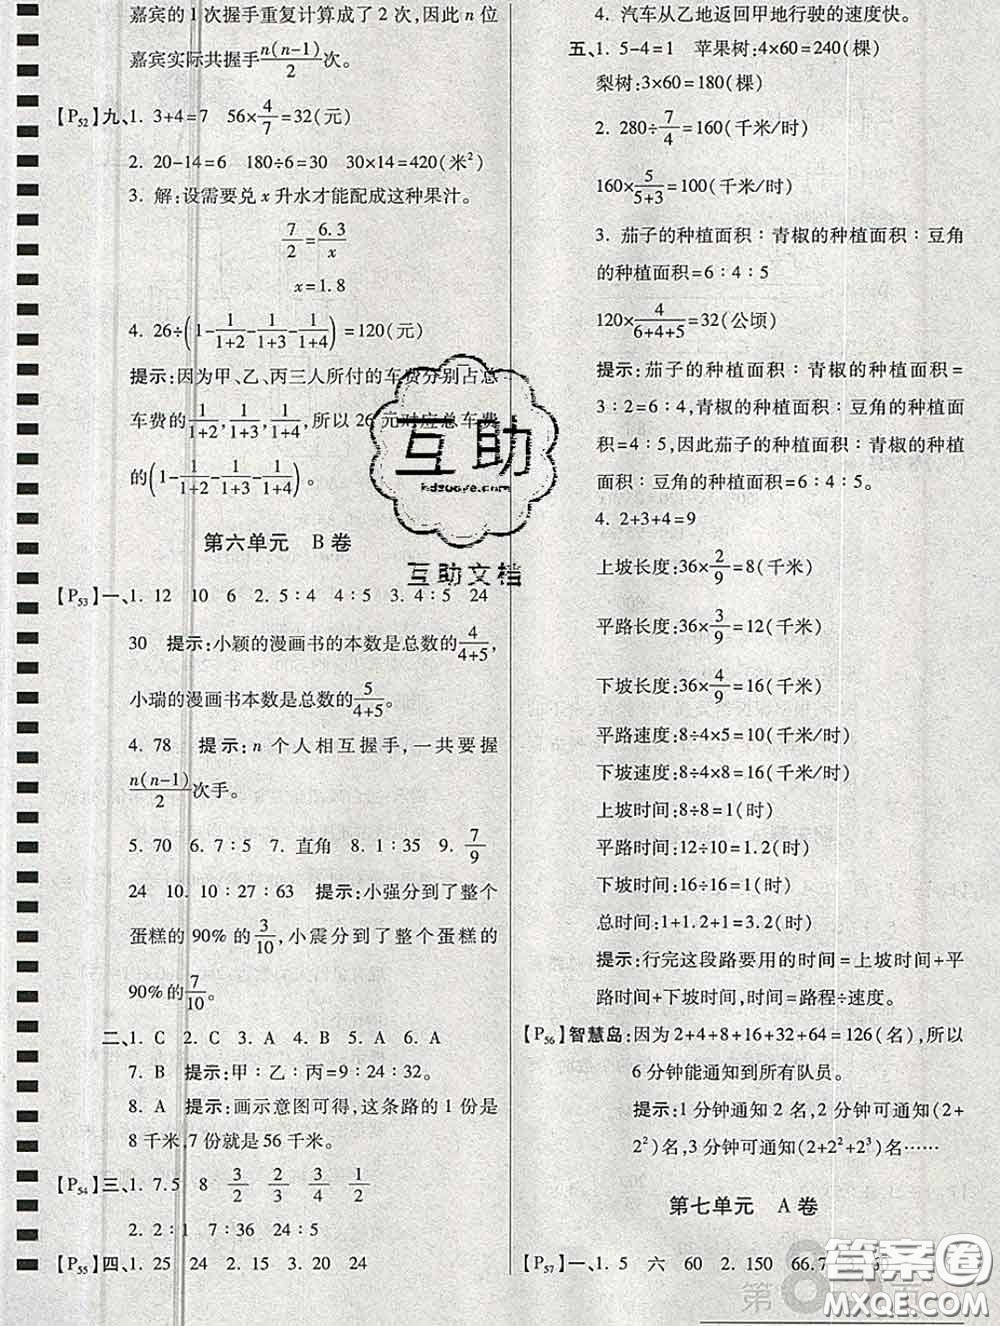 嘉宾的1次握手重复计算成了2次,因此n位
嘉宾实际共握手n(n-1)/2次。
【P52】九、1. 3+4=7 56×4/7=32(元)
2. 20-14=6 180÷6=30 30×14=420(米²)
3. 解:设需要兑x升水才能配成这种果汁。
7/2=6.3/x
x=1.8
4. 26÷(1-1/(1+2)-1/(1+3)-1/(1+4))=120(元)
提示:因为甲、乙、丙三人所付的车费分别占总
车费的1/(1+2),1/(1+3),1/(1+4),所以26元对应总车费
的(1-1/(1+2)-1/(1+3)-1/(1+4))。
第六单元 B卷
【P53】一、1. 12 10 6 2. 5:4 4:5 3. 4:5 24
30 提示:小颖的漫画书的本数是总数的4/(4+5),
小瑞的漫画书本数是总数的5/(4+5)。
4. 78 提示:n个人相互握手,一共要握
n(n-1)/2次手。
5. 70 6. 7:5 7. 直角 8. 1:45 9. 7/9
24 10. 10:27:63 提示:小强分到了整个
蛋糕的90%的3/10,小震分到了整个蛋糕的
90%的7/10。
二、1. C 2. C 3. A 4. B 5. A 6. A
7. B 提示:甲:乙:丙=9:24:32。
8. A 提示:画示意图可得,这条路的1份是
8千米,7份就是56千米。
【P54】三、1. 7.5 8 3/2 3/4 1/2
2. 2:1 7:36 24:5
【P55】四、1. 25 24 2. 15 9 3. 20 24
4. 汽车从乙地返回甲地行驶的速度快。
五、1. 5-4=1 苹果树:4×60=240(棵)
梨树:3×60=180(棵)
2. 280÷7/4=160(千米/时)
160×5/(5+3)=100(千米/时)
3. 茄子的种植面积:青椒的种植面积:豆角
的种植面积=6:4:5
120×4/(6+4+5)=32(公顷)
提示:茄子的种植面积:青椒的种植面积=
3:2=6:4,青椒的种植面积:豆角的种植面
积=4:5,因此茄子的种植面积:青椒的种植
面积:豆角的种植面积=6:4:5。
4. 2+3+4=9
上坡长度:36×2/9=8(千米)
平路长度:36×3/9=12(千米)
下坡长度:36×4/9=16(千米)
平路速度:8÷4×5=10(千米/时)
下坡速度:8÷4×8=16(千米/时)
上坡时间:8÷8=1(时)
平路时间:12÷10=1.2(时)
下坡时间:16÷16=1(时)
总时间:1+1.2+1=3.2(时)
提示:行完这段路要用的时间=上坡时间+平
路时间+下坡时间,时间=路程÷速度。
【P56】智慧岛:因为2+4+8+16+32+64=126(名),所以
6分钟能通知到所有队员。
提示:1分钟通知2名,2分钟可通知(2+
2²)名,3分钟可通知(2+2²+2³)名……
第七单元 A卷
【P57】一、1. 5 六 60 2. 150 66.7
互助
hdzuoye.com
互助文档
答案圈
MXQE.COM
第 页